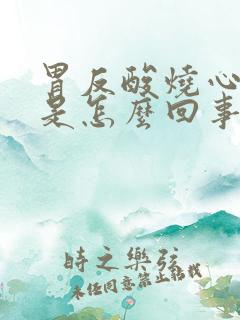 胃反酸燒心
是怎麽回事
時之樂弦
未经同意禁止转载